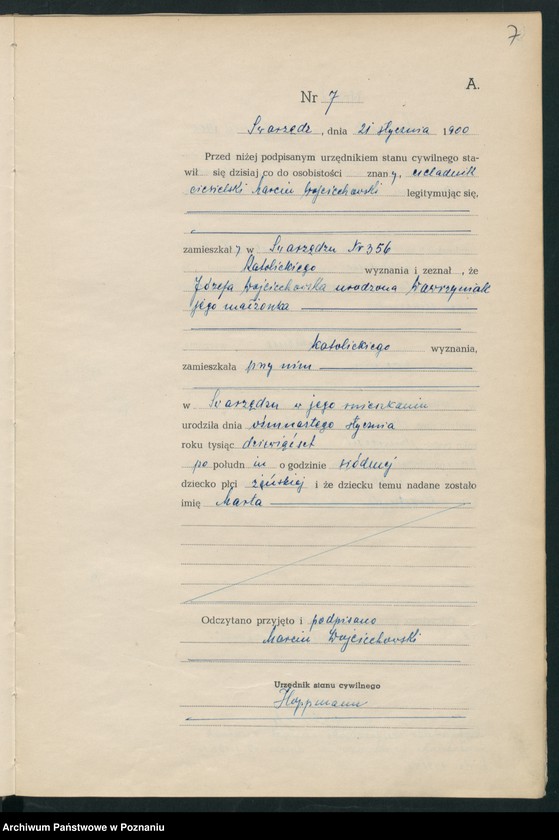 7
A.
Nr 7
Swarzędz, dnia 21 stycznia 1900
Przed niżej podpisanym urzędnikiem stanu cywilnego sta-
wił się dzisiaj co do osobistości znany, czeladnik
ciesielski Marcin Wojciechowski legitymując się,
zamieszkały w Swarzędzu Nr 356
katolickiego wyznania i zeznał, że
Józefa Wojciechowska urodzona Wawrzyniak
jego małżonka
katolickiego wyznania,
zamieszkała przy nim
w Swarzędzu w jego mieszkaniu
urodziła dnia ósmnastego stycznia
roku tysiąc dziewięćset
po południu o godzinie siódmej
dziecko płci żeńskiej i że dziecku temu nadane zostało
imię Marta
Odczytano przyjęto i podpisano
Marcin Wojciechowski
Urzędnik stanu cywilnego
Hoppmann
Archiwum Państwowe w Poznaniu